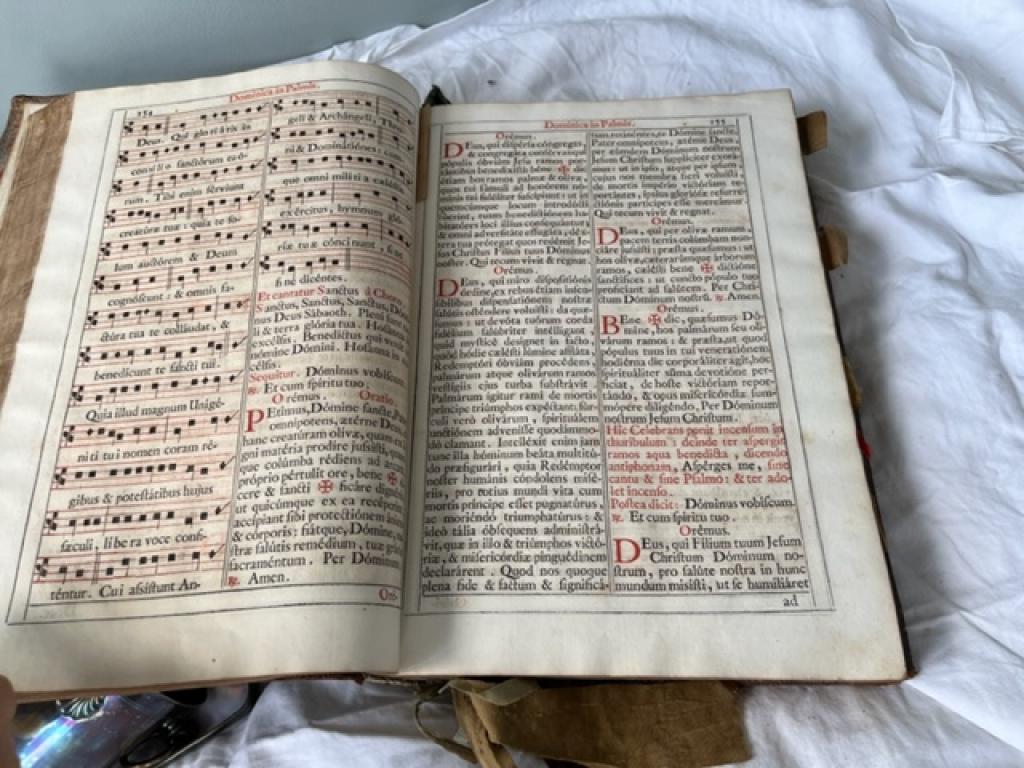 154
Dominica in Palmis.
Deus. Qui gloriáris in
consilio sanctórum tuó-
rum. Tibi enim sérviunt
creatúræ tuæ: quia te so-
lum auctórem & Deum
cognóscunt: & omnis fa-
ctúra tua te colláudat, &
benedícunt te sancti tui.
Quia illud magnum Unigé-
niti tui nomen coram ré-
gibus & potestátibus hujus
sæculi, libera voce confi-
téntur. Cui assístunt An-
geli & Archángeli, Thro-
ni & Dominatiónes: cum-
que omni milítia cæléstis
exércitus, hymnum gló-
riæ tuæ cóncinunt, si-
ne fine dicéntes.
Et cantatur Sanctus à Choro.
Sanctus, Sanctus, Sanctus, Dómi-
nus Deus Sábaoth. Pleni sunt cæ-
li & terra glória tua. Hosánna in
excélsis. Benedíctus qui venit in
nómine Dómini. Hosánna in ex-
célsis.
Sequitur. Dóminus vobíscum.
℟. Et cum spíritu tuo.
Orémus. Oratio.
Pétimus, Dómine sancte, Pater
omnípotens, ætérne Deus
hanc creatúram olívæ, quam ex li-
gni matéria prodíre jussísti, quam-
que colúmba rédiens ad arcam
próprio pértulit ore, bene ✠ dí-
cere & sancti ✠ ficáre dignéris:
ut quicúmque ex ea recéperint,
accípiant sibi protectiónem ánimæ
& córporis: fiátque, Dómine, no-
stræ salútis remédium, tuæ grátiæ
sacraméntum. Per Dóminum.
℟. Amen.
Oré-
Dominica in Palmis.
155
Orémus.
Deus, qui dispérsa cóngregas,
& congregáta consérvas: qui
pópulis óbviam Jesu ramos por-
tántibus benedixísti: béne ✠ dic
étiam hos ramos palmæ & olívæ,
quos tui fámuli ad honórem nó-
minis tui fidéliter suscípiunt: ut in
quemcúmque locum introdúcti
fúerint, tuam benedictiónem ha-
bitatóres loci illíus consequántur:
& omni adversitáte effugáta, déx-
tera tua prótegat quos redémit Je-
sus Christus Fílius tuus Dóminus
noster. Qui tecum vivit & regnat.
Orémus.
Deus, qui miro dispositiónis
órdine, ex rebus étiam insen-
sibílibus dispensatiónem nostræ
salútis osténdere voluísti: da quæ-
sumus: ut devóta tuórum corda
fidélium salúbriter intélligant,
quid mýstice desígnet in facto,
quod hódie cælésti lúmine afflátá,
Redemptóri óbviam procédens,
palmárum atque olivárum ramos
vestígiis ejus turba substrávit.
Palmárum ígitur rami de mortis
príncipe triúmphos expéctant: súr-
culi verò olivárum, spirituálem
unctiónem advenísse quodámmo-
do clamant. Intelléxit enim jam
tunc illa hóminum beáta multitú-
do præfigurári, quia Redémptor
noster humánis cóndolens misé-
riis, pro totíus mundi vita cum
mortis príncipe esset pugnatúrus,
ac moriéndo triumphatúrus: &
ídeò tália óbsequens administrá-
vit, quæ in illo & triúmphos victó-
riæ, & misericórdiæ pinguédinem
declarárent. Quod nos quoque
plena fide & factum & significá-
tum retinéntes, te Dómine sancte,
Pater omnípotens, ætérne Deus,
per eúmdem Dóminum nostrum
Jesum Christum supplíciter exorá-
mus: ut in ipso, atque per ipsum,
cujus nos membra fíeri voluísti,
de mortis império victóriam re-
portántes, ipsíus gloriósæ resurre-
ctiónis partícipes esse mereámur.
Qui tecum vivit & regnat.
Orémus.
Deus, qui per olívæ ramum,
pacem terris colúmbam nun-
ciáre jussísti: præsta quæsumus: ut
hos olívæ, cæterarúmque árborum
ramos, cælésti bene ✠ dictióne
sanctífices: ut cuncto pópulo tuo
profíciant ad salútem. Per Chri-
stum Dóminum nostrū. ℟. Amen.
Orémus.
Bene ✠ dic, quæsumus Dó-
mine, hos palmárum seu oli-
várum ramos: & præsta, ut quod
pópulus tuus in tui veneratiónem
hodiérna die corporáliter agit, hoc
spirituáliter summa devotióne per-
fíciat, de hoste victóriam repor-
tándo, & opus misericórdiæ sum-
mópere diligéndo. Per Dóminum
nostrum Jesum Christum.
Hic Celebrans ponit incensum in
thuribulum: deinde ter aspergit
ramos aqua benedicta, dicendo
antiphonam, Aspérges me, sine
cantu & sine Psalmo: & ter ado-
let incenso.
Postea dicit: Dóminus vobíscum.
℟. Et cum spíritu tuo.
Orémus.
Deus, qui Fílium tuum Jesum
Christum Dóminum no-
strum, pro salúte nostra in hunc
mundum misísti, ut se humiliáret
ad